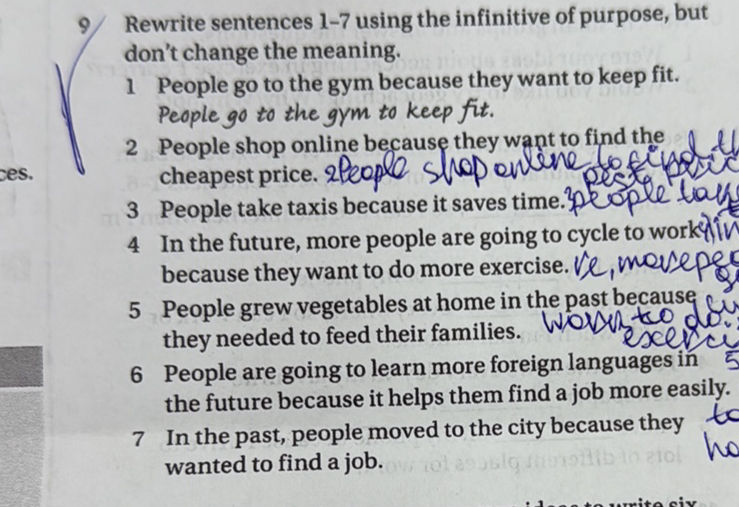 9 Rewrite sentences 1–7 using the infinitive of purpose, but
don't change the meaning.
1 People go to the gym because they want to keep fit.
People go to the gym to keep fit.
2 People shop online because they want to find the
ces. cheapest price. 2People shop online to find
3 People take taxis because it saves time. 3people
4 In the future, more people are going to cycle to work
because they want to do more exercise.
5 People grew vegetables at home in the past because
they needed to feed their families. to do
6 People are going to learn more foreign languages in 5
the future because it helps them find a job more easily.
7 In the past, people moved to the city because they to
wanted to find a job.